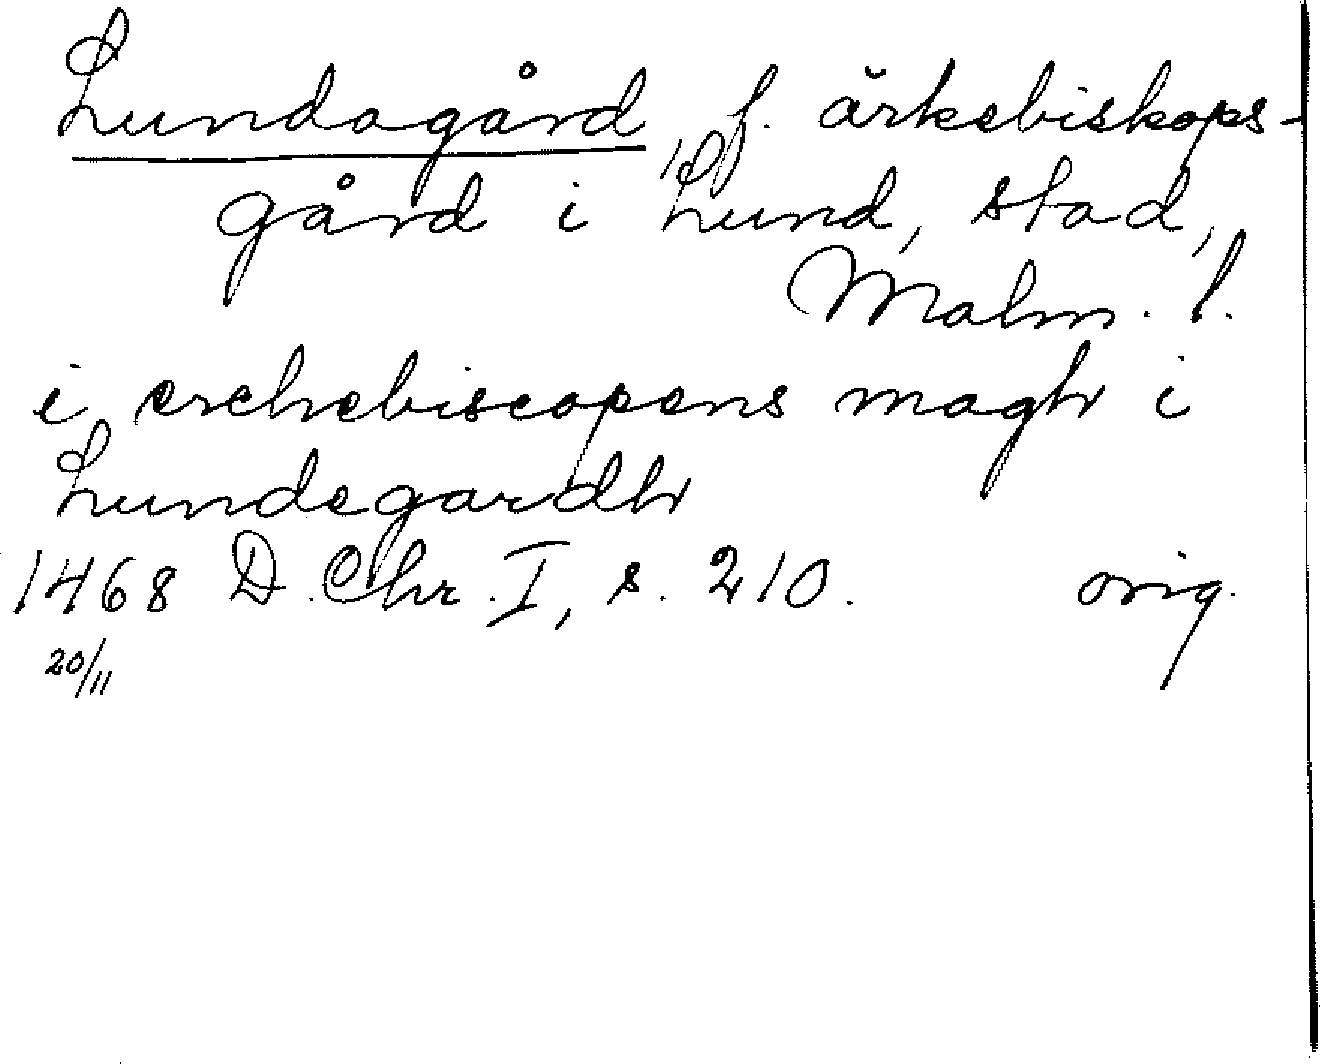 Lundagård, f. ärkebiskops-
gård i Lund, stad,
Malm. l.
i erchebiscopens magh i
Lundegardh
1468 D. Chr. I, s. 210. orig.
20/11